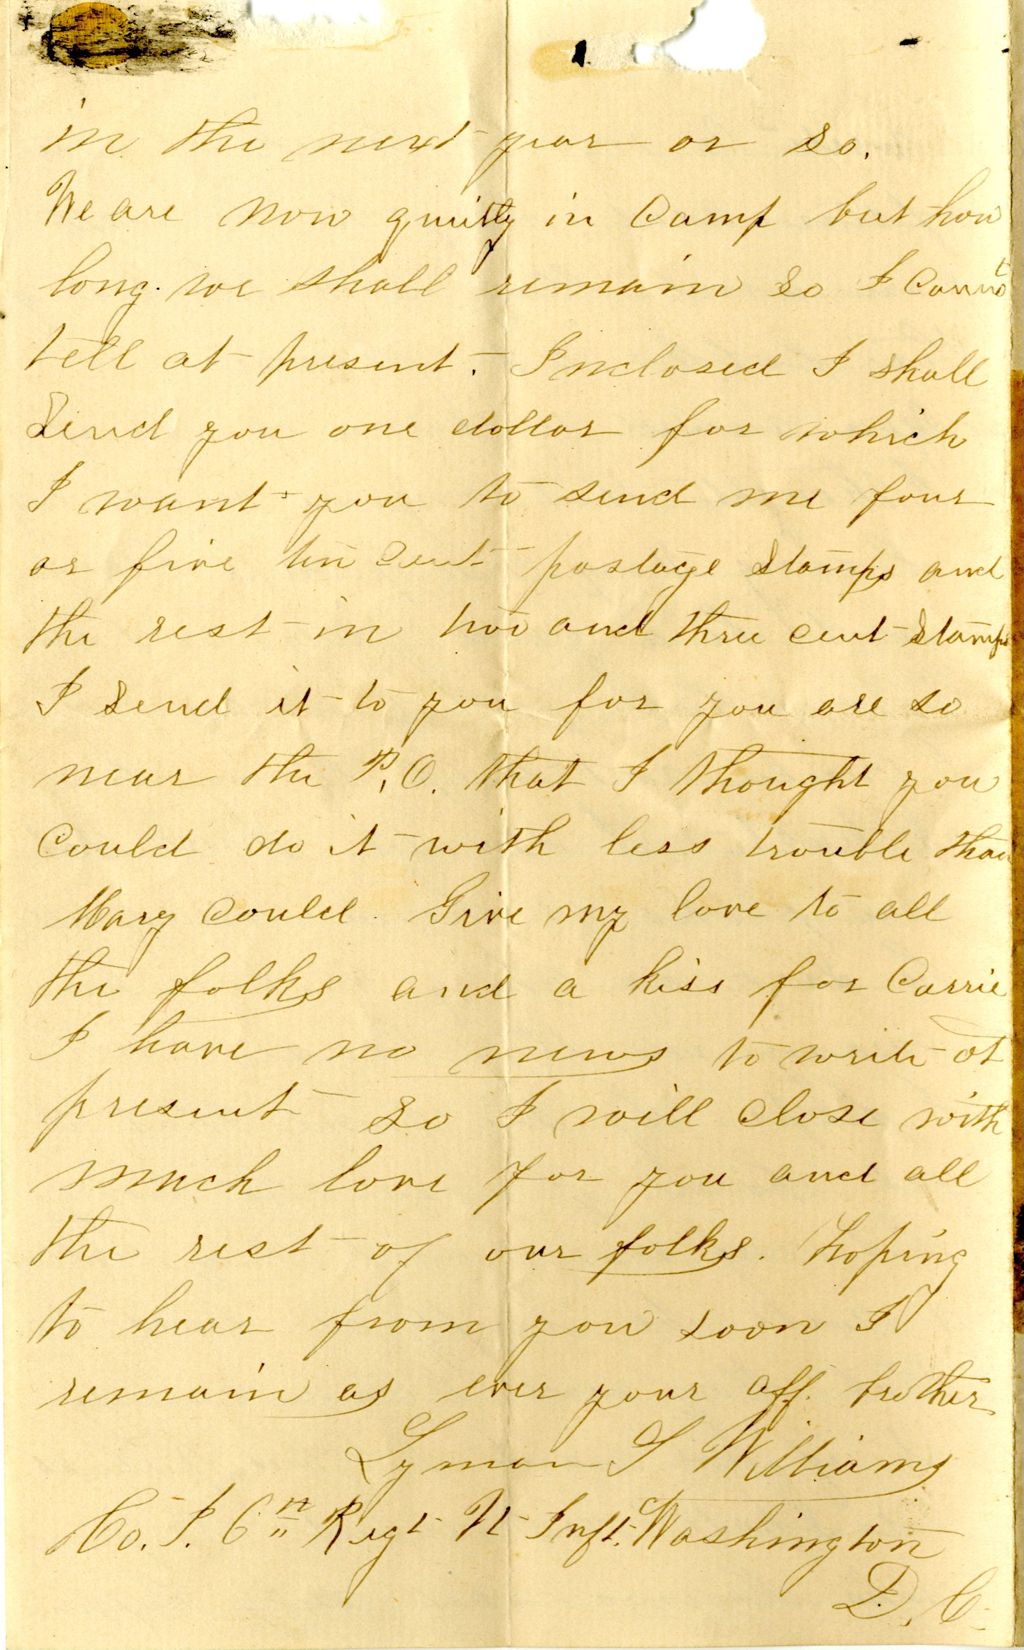 in the next year or so.
We are now quietly in Camp but how
long we shall remain so I Cannot
tell at present. Inclosed I shall
Send you one dollar for which
I want you to send me four
or five ten cent postage Stamps and
the rest in two and three cent Stamps
I send it to you for you are so
near the P.O. that I thought you
Could do it with less trouble than
Mary Could. Give my love to all
the folks and a kiss for Carrie
I have no news to write at
present so I will close with
much love for you and all
the rest of our folks. hoping
to hear from you soon I
remain as ever your aff. brother
Lyman S Williams
Co. I. 6th Regt Vt Inft. Washington
D. C.